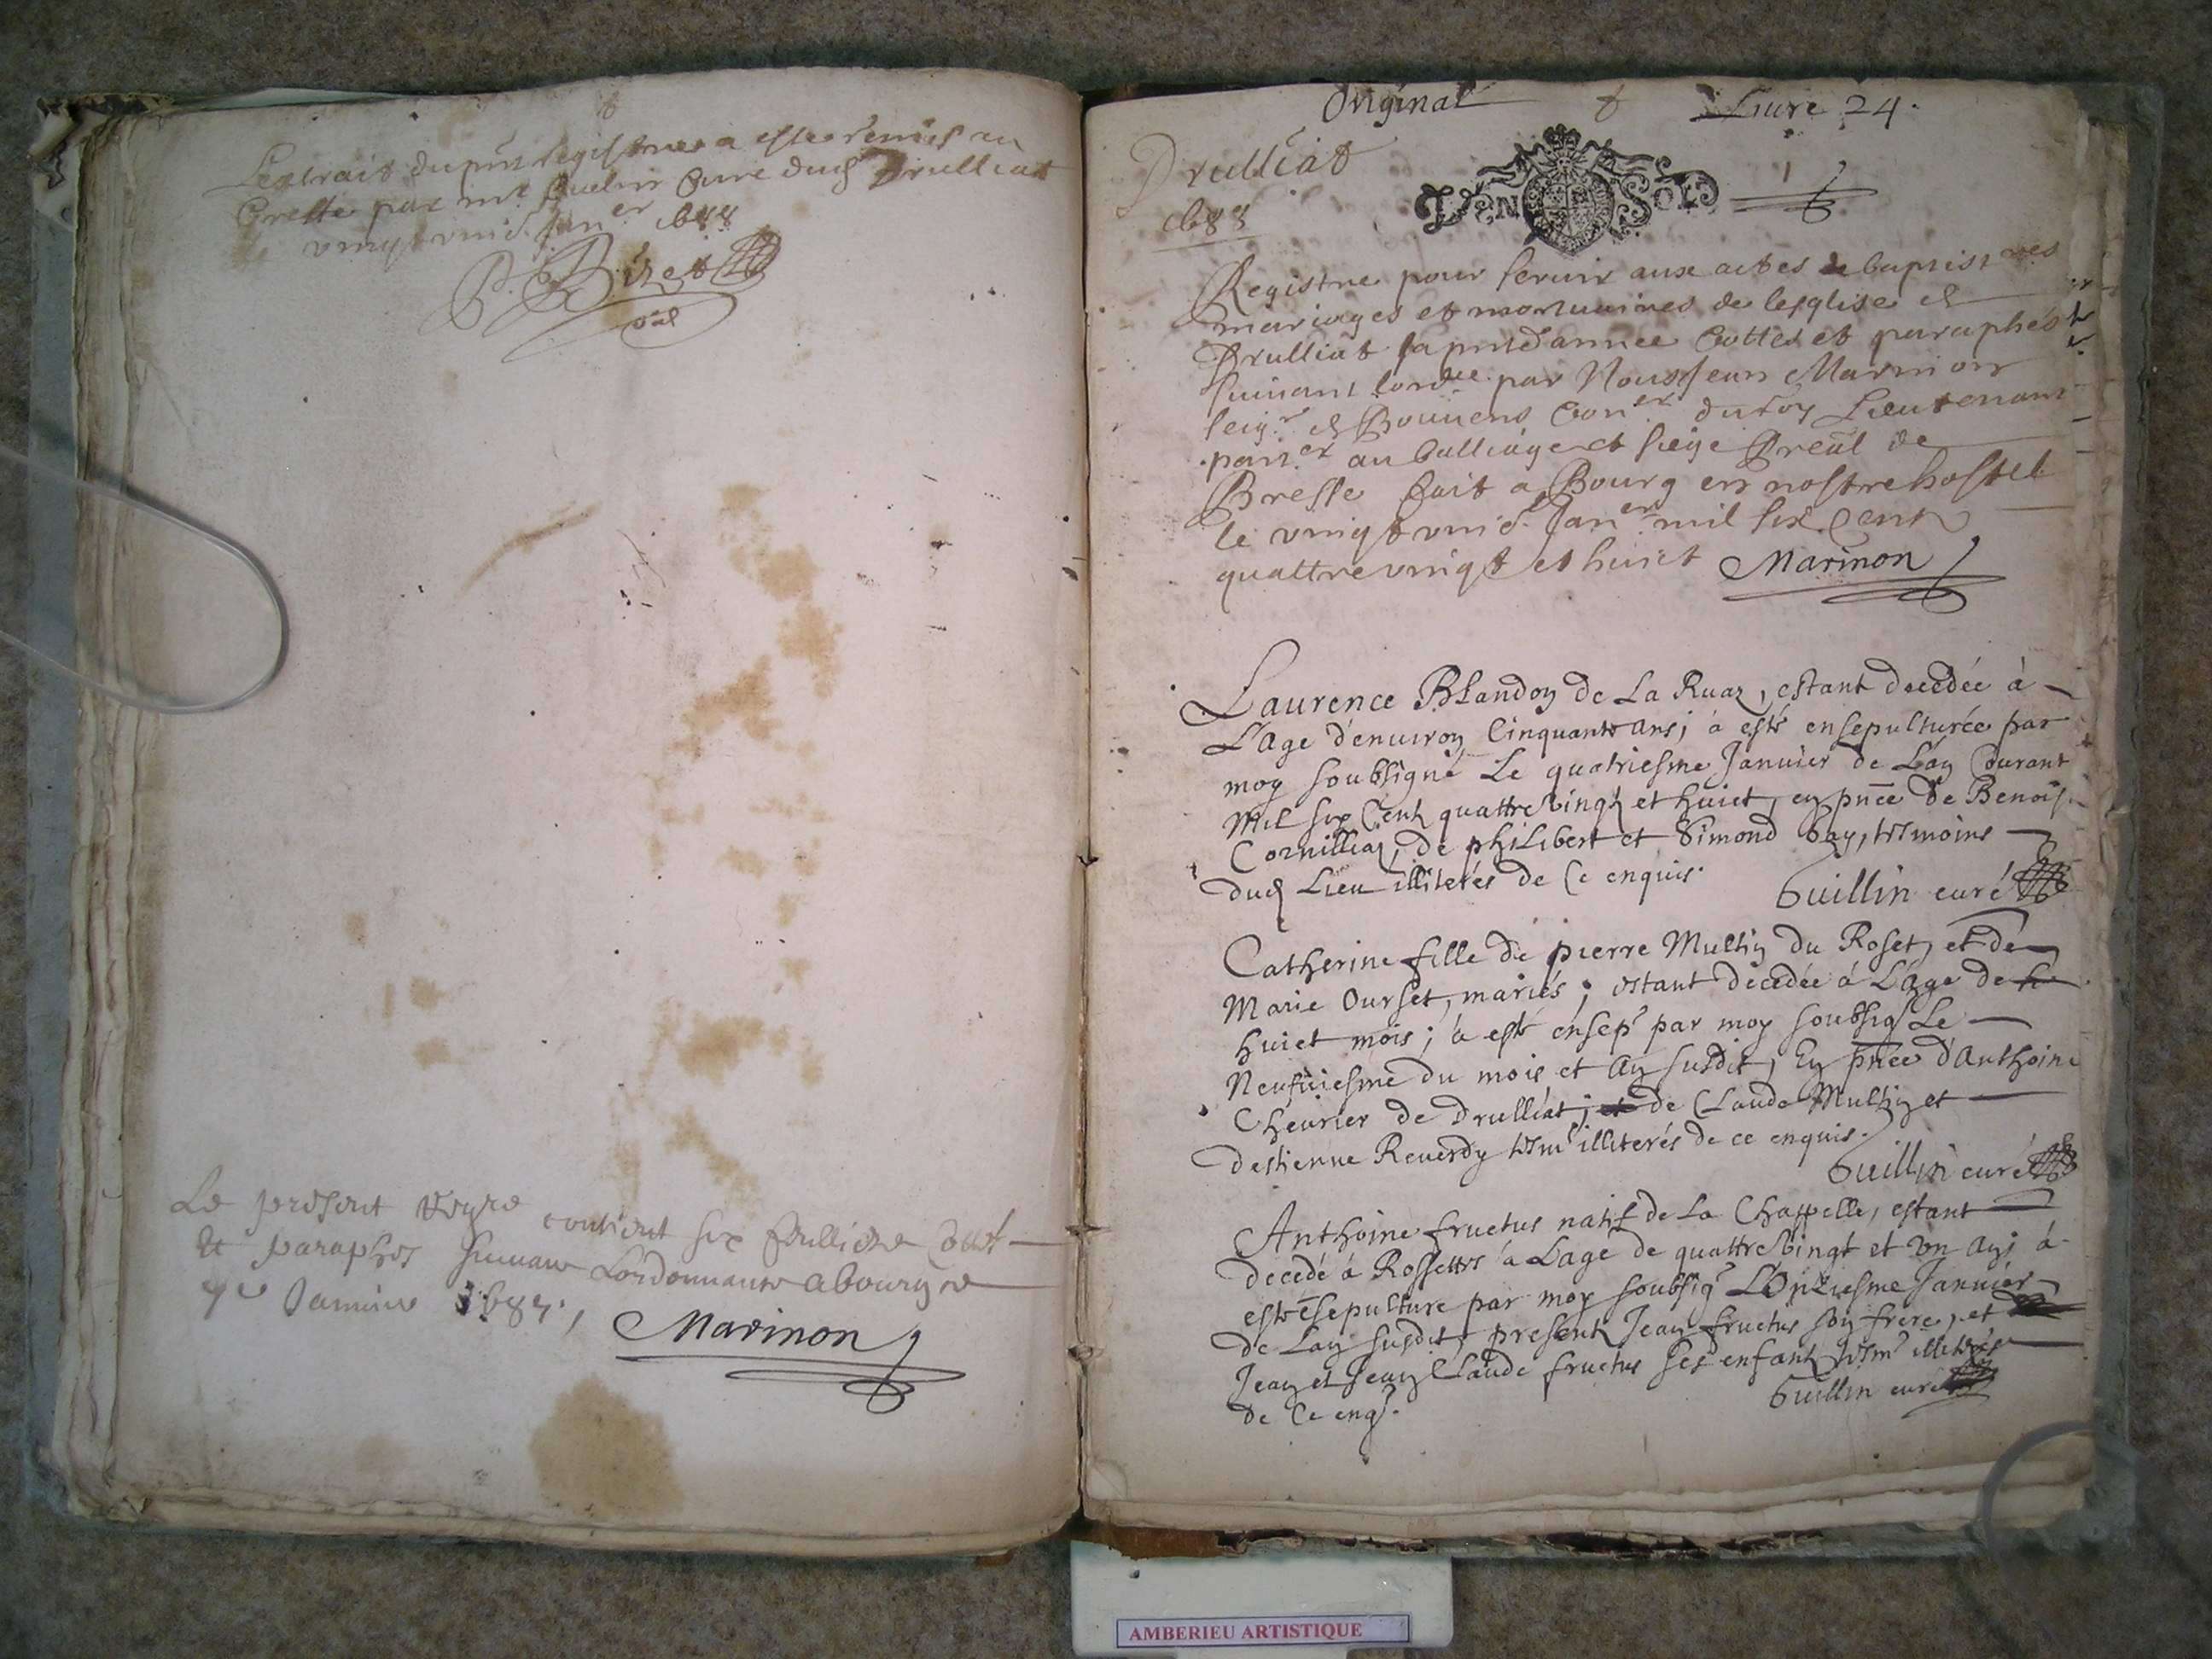 Lextrait du pnt registre a este remis au
Greffe par mre Guilin Curé dud Drulliat
le vingt uniè. Janer 1688
P. Bizet
Le present Regre contient six feullietz Cott
et paraphes suivant Lordonnance a bourg ce
Janvier 1687
Marinon
Original Livre 24.
Drulliat
1688
VEN SOLS
1
Registre pour servir aux actes de baptismes
mariages et mortuaires de lesglise de
Drulliat la pnte année Cottés et paraphés
suivant lordce par Nous Jean Marinon
seigr de Bouvens Coner du Roy Lieutenant
parer au balliage et siege Preâl de
Bresse fait a Bourg en nostre hostel
le vingt uniè. Janer mil six Cent
quattre vingt et huict Marinon
Laurence Blandon de La Ruaz, estant decedée à
L'age d'enuiron Cinquante ans; à esté ensepulturée par
moy soubsigné Le quatriesme Januier de L'an Courant
Mil six Cent quattre Vingt et huict, en pnce de Benoist
Cornillian, de philibert et Simond Gay, tesmoins
dud Lieu illiterés de Ce enquis.
Guillin curé
Catherine fille de pierre Multin du Roset, et de
Marie Ourset, mariés; estant decedée à L'age de
huict mois; à esté ensep. par moy soubsig. Le
Neufuiesme du mois et an susdit, En pnce d'Anthoine
Cheurier de Drulliat; de Claude Multin et
destienne Reuerdy tesm. illiterés de ce enquis.
Guillin curé
Anthoine fructus natif de La Chappelle, estant
decedé à Rossettes à L'age de quattre Vingt et vn an; à
esté ēsepulture par moy soubsig. L'Onziesme Januier
de L'an susdit, present Jean fructus son frere, et
Jean et Jean Claude fructus ses enfants tesm. illiterés
de Ce enq.
Guillin curé
AMBERIEU ARTISTIQUE